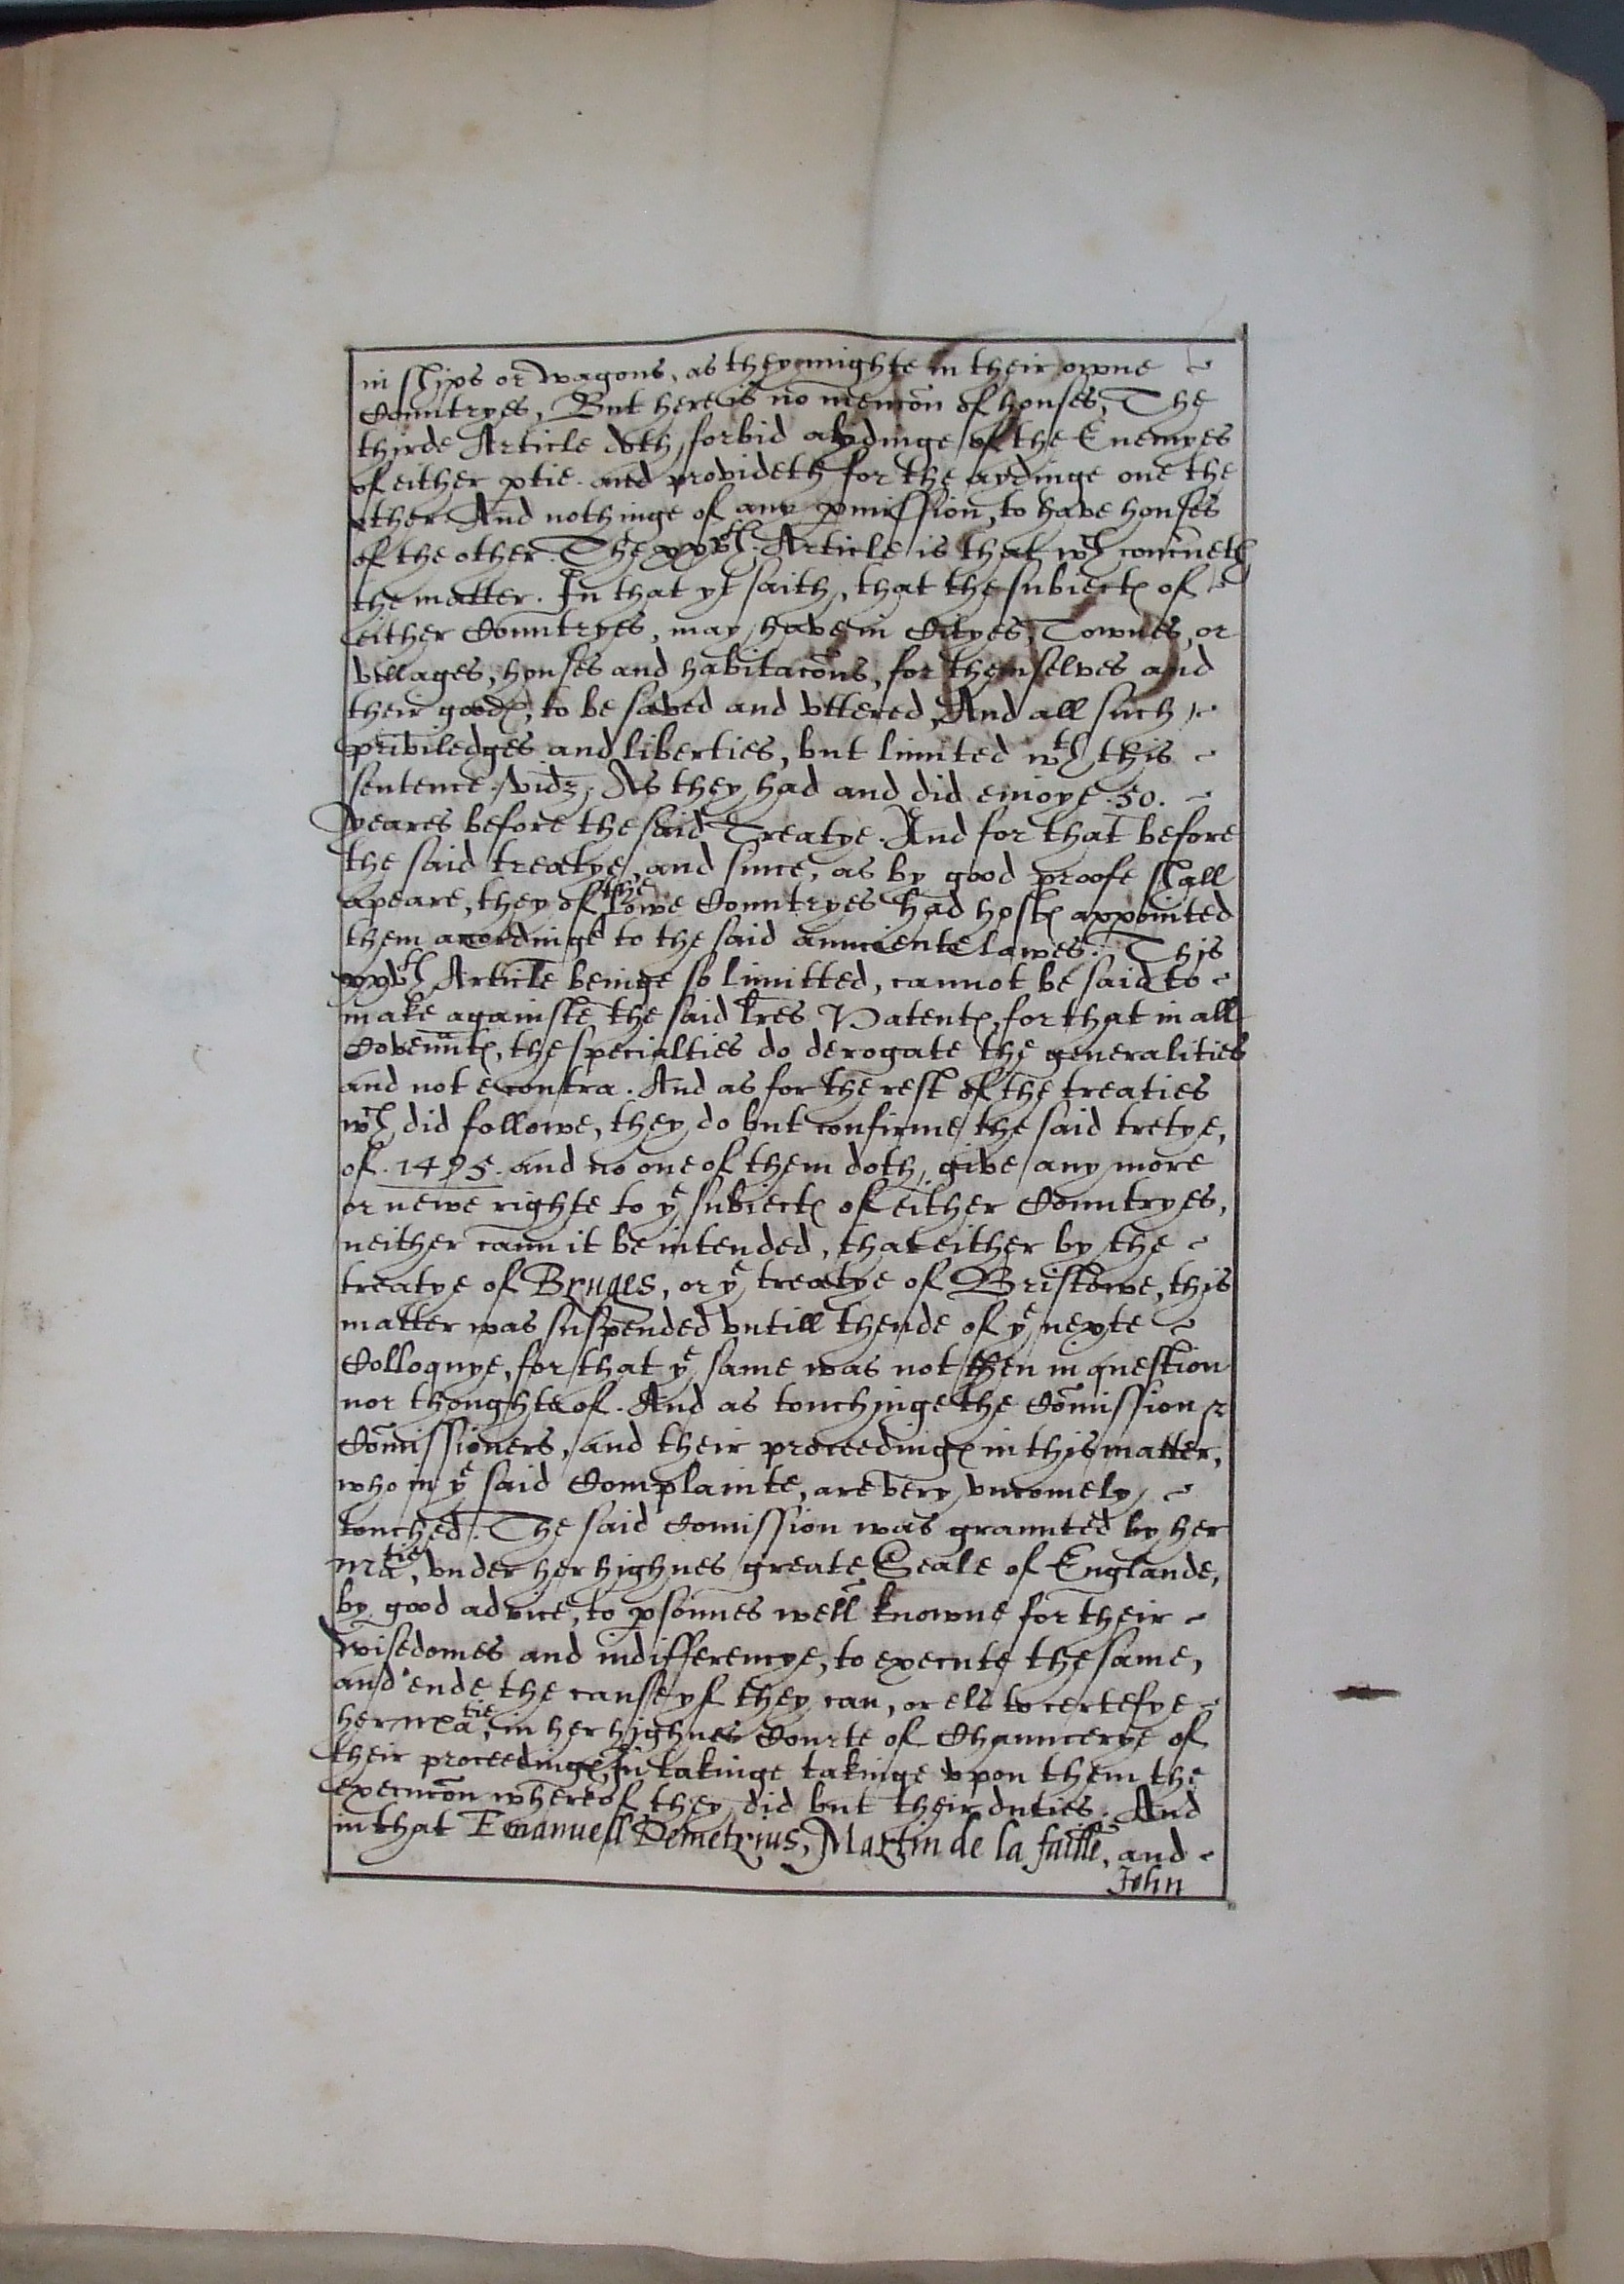 in ships or wagons, as they mighte in their owne
Countryes, But here is no mencõn of houses, The
thirde Article doth forbid aydinge of the Enemyes
of either ptie. and provideth for the aydinge one the
other And nothinge of any pmission, to have houses
of the other. The xxvth. Article is that wch concneth
the matter. In that yt saith, that the subiectes of
either Countryes, may have in Cityes, Townes, or
villages, houses and habitacõns, for themselves and
their goodes, to be saved and vttered, And all such
priviledges and liberties, but limited wth this
sentence. vidz, As they had and did enioye .50.
yeares before the said Treatye. And for that before
the said treatye, and since, as by good proofe shall
apeare, they of the lowe Countryes had hostes appointed
them accordinge to the said aunciente lawes. This
xxvth Article beinge so limitted, cannot be said to
make againste the said lres Patentes, for that in all
Covennãtes, the specialties do derogate the generalities
and not econtra. And as for the rest of the treaties
wch did followe, they do but confirme the said tretye,
of .1495. and no one of them doth, give any more
or newe righte to ye subiectes of either Countryes,
neither cann it be intended, that either by the
treatye of Bruges, or ye treatye of Bristowe, this
matter was suspended vntill thende of ye nexte
Colloquye, for that ye same was not then in question
nor thoughte of. And as touchinge the Comission &
Comissioners, and their proceedinges in this matter,
who in ye said Complainte, are very vncomely
touched. The said Comission was graunted by her
matie, vnder her highnes greate Seale of Englande,
by good advice, to psonnes well knowne for their
wisedomes and indifferencye, to execute the same,
and ende the cause yf they can, or els to certefye
her matie, in her highnes Courte of Chauncerye of
their proceedinges, In takinge takinge vpon them the
execucõn whereof they did but their duties. And
in that Emanuell Demetrius, Martin de la faille, and
John